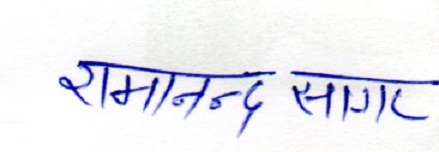 रामानन्द सागर